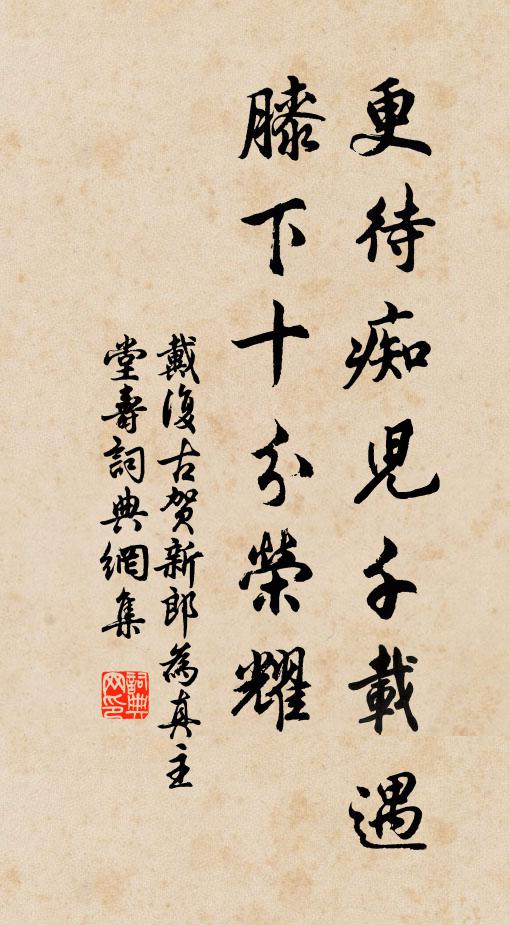 更待痴児千載遇
膝下十分榮耀
戴復古賀新郎為真主
堂壽詞典網集
詞典
网印